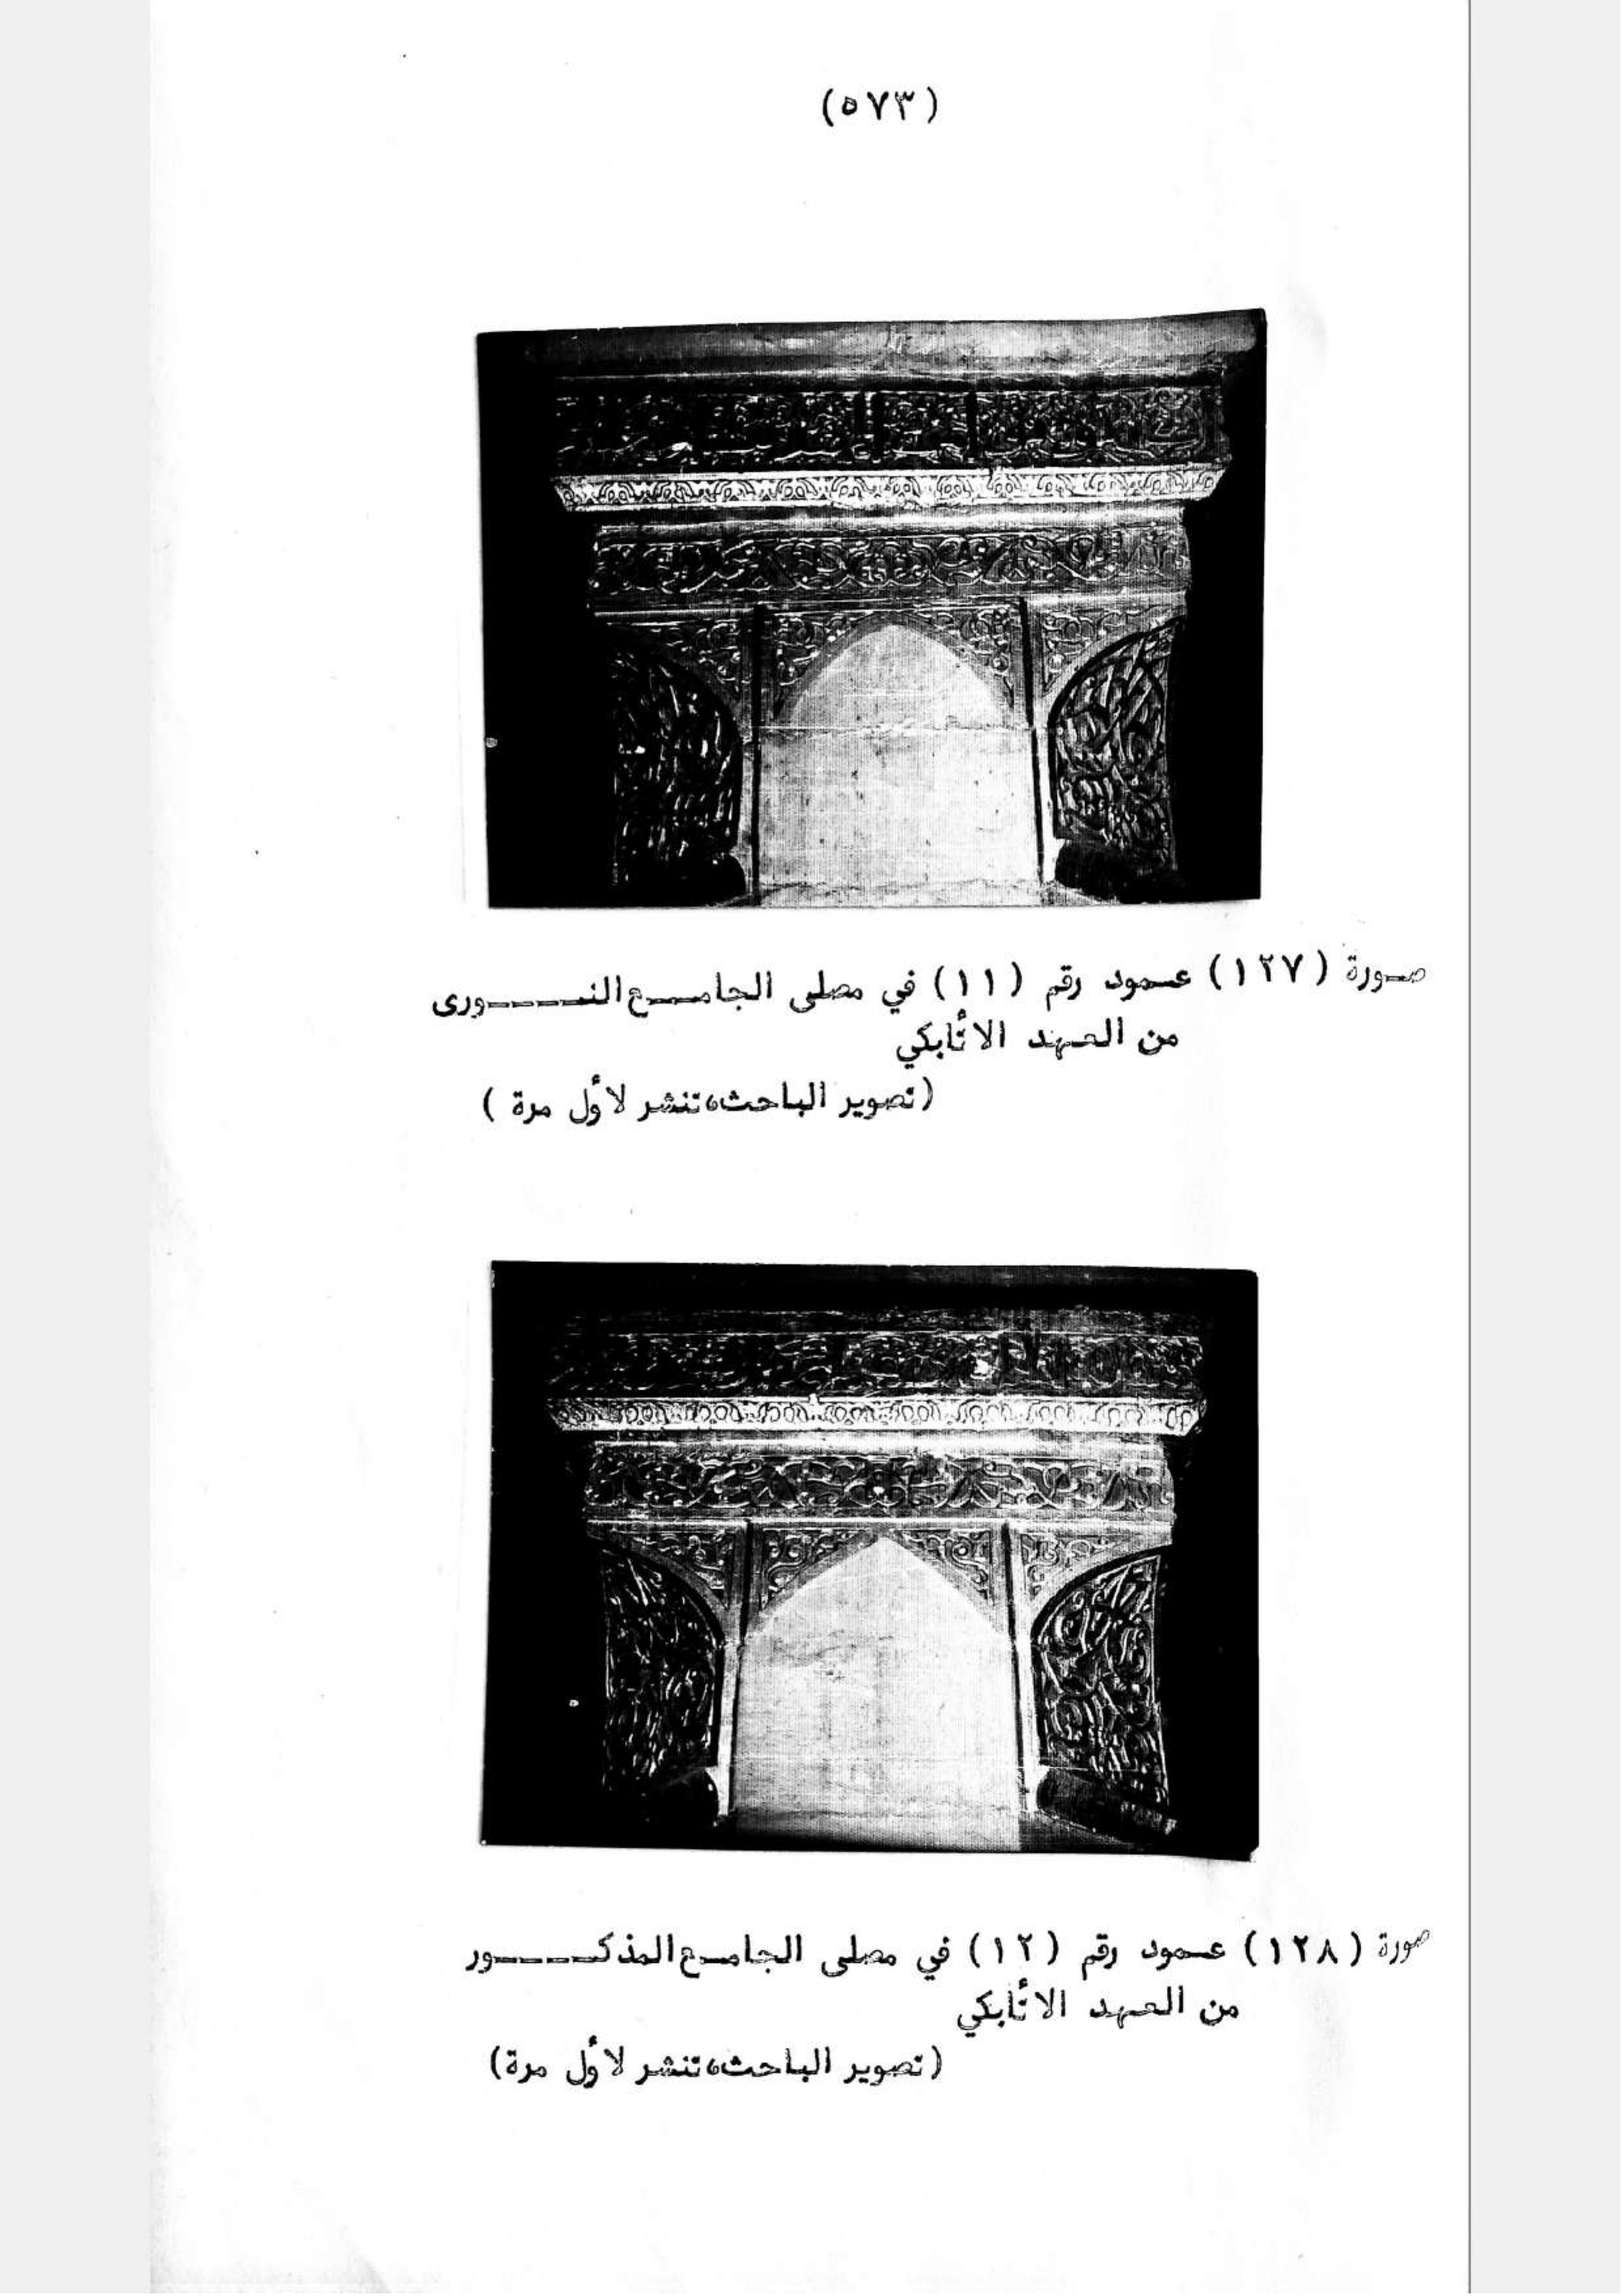 (٥٧٣)
صورة (١٢٧) عمود رقم (١١) في مصلى الجامع النورى
من العهد الاتٔابكي
(تصوير الباحث، تنشر لاؤل مرة )
صورة (١٢٨) عمود رقم (١٢) في مصلى الجامع المذكور
من العهد الاتٔابكي
(تصوير الباحث، تنشر لاؤل مرة)